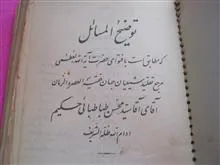 توضیح المسائل
که مطابق است با فتاوای حضرت آیة الله العظمی
مرجع تقلید شیعیان جهان فقیه العصر والزمان
آقای آقا سید محسن طباطبائی حکیم
ادام الله ظله الشریف